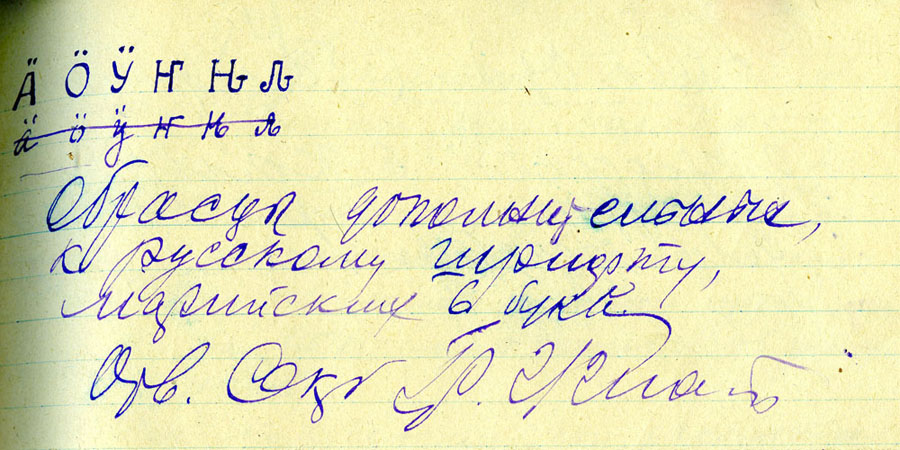 Ӓ Ӧ Ӱ Ҥ Њ Љ
ӓ ӧ ӱ ҥ њ љ
Обрасцы дополнительных,
к русскому шрифту,
марийских 6 букв.
Отв. Секр Гр.